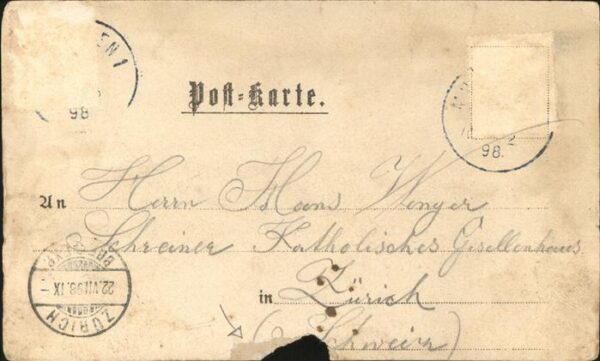 EN 1
98
Post-Karte.
98.
An Herrn Hans Wenger
Schreiner Katholisches Gesellenhaus
in Zürich
(Schweiz)
22.VII.98.IX
ZÜRICH